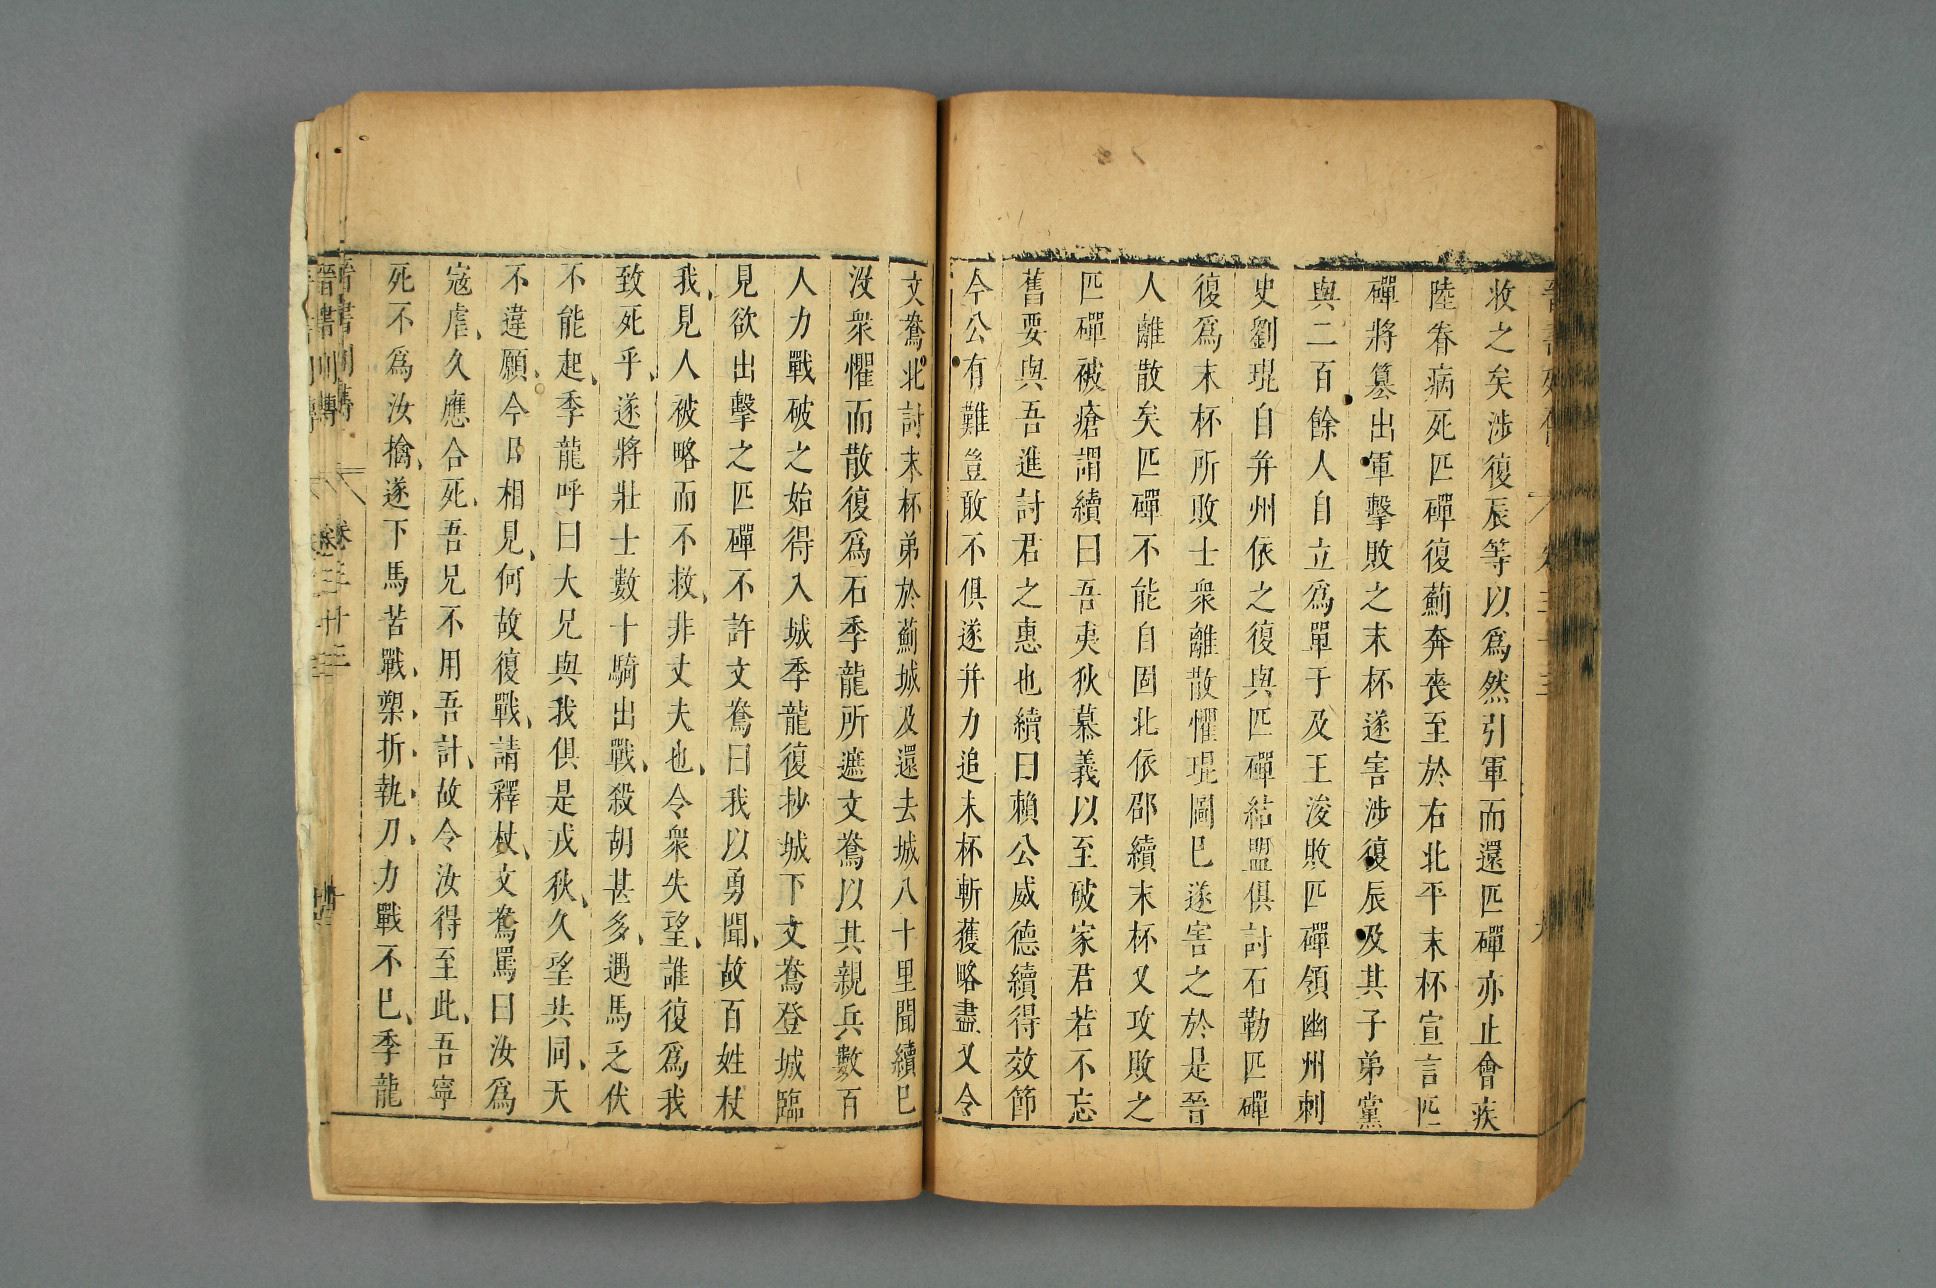 收之矣涉復辰等以爲然引軍而還匹磾亦止會疾
陸眷病死匹磾復薊奔喪至於右北平末杯宣言匹
磾將篡出軍擊敗之末杯遂害涉復辰及其子弟黨
與二百餘人自立爲單于及王浚敗匹磾領幽州刺
史劉琨自并州依之復與匹磾結盟俱討石勒匹磾
復爲末杯所敗士衆離散懼琨圖已遂害之於是晉
人離散矣匹磾不能自固北依邵續末杯又攻敗之
匹磾被瘡謂續曰吾夷狄慕義以至破家君若不忘
舊要與吾進討君之惠也續曰賴公威德續得效節
今公有難豈敢不俱遂并力追末杯斬獲略盡又令
文鴦北討末杯弟於薊城及還去城八十里聞續已
沒衆懼而散復爲石季龍所遮文鴦以其親兵數百
人力戰破之始得入城季龍復抄城下文鴦登城臨
見欲出擊之匹磾不許文鴦曰我以勇聞故百姓杖
我見人被略而不救非丈夫也令衆失望誰復爲我
致死乎遂將壯士數十騎出戰殺胡甚多遇馬乏伏
不能起季龍呼曰大兄與我俱是戎狄久望共同天
不違願今日相見何故復戰請釋杖文鴦罵曰汝爲
寇虐久應合死吾兄不用吾計故令汝得至此吾寧
死不爲汝擒遂下馬苦戰槊折執刀力戰不已季龍
晉書列傳 卷三十三